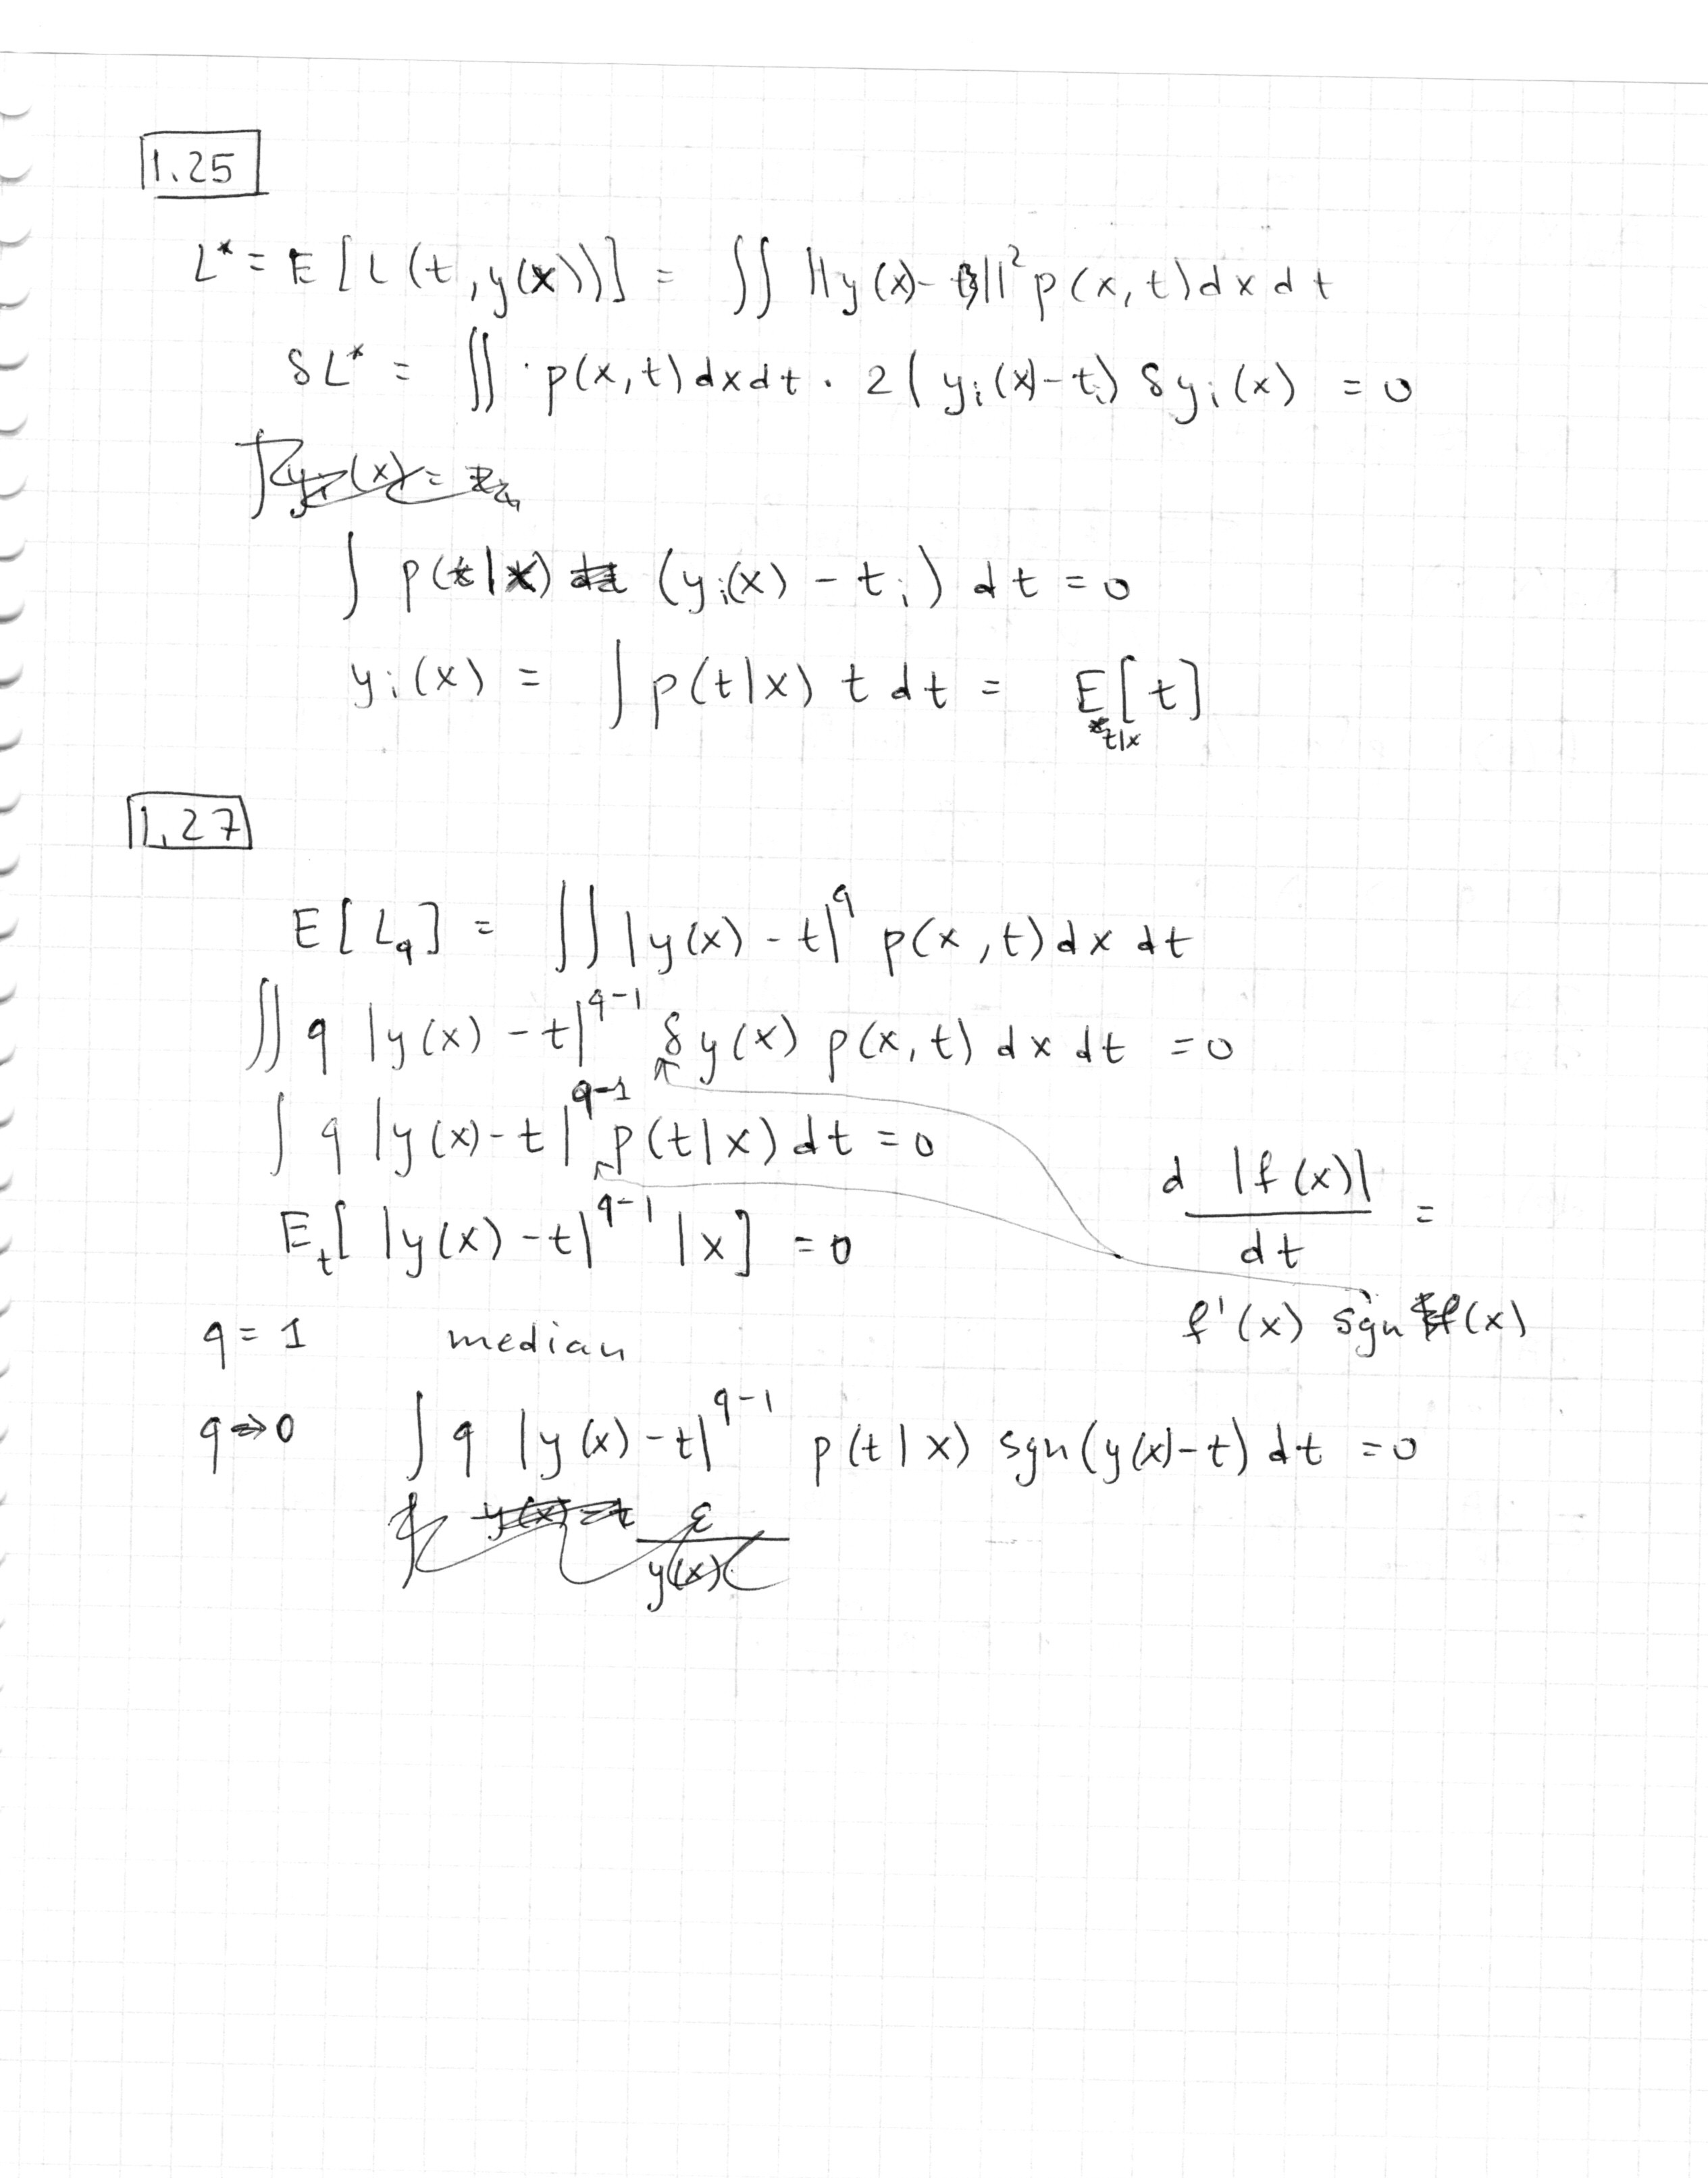 1.25
L* = E[L(t, y(x))] = ∫∫ ||y(x) - t||² p(x, t) dx dt
δL* = ∫∫ · p(x, t) dx dt · 2(yᵢ(x) - tᵢ) δyᵢ(x) = 0
∫ p(t|x) (yᵢ(x) - tᵢ) dt = 0
yᵢ(x) = ∫ p(t|x) t dt = E_{t|x}[t]
1.27
E[L_q] = ∫∫ |y(x) - t|^q p(x, t) dx dt
∫∫ q |y(x) - t|^{q-1} δy(x) p(x, t) dx dt = 0
∫ q |y(x) - t|^{q-1} p(t|x) dt = 0
d |f(x)| / dt =
E_t[ |y(x) - t|^{q-1} | x] = 0
f'(x) sgn f(x)
q = 1 median
q → 0 ∫ q |y(x) - t|^{q-1} p(t|x) sgn(y(x) - t) dt = 0